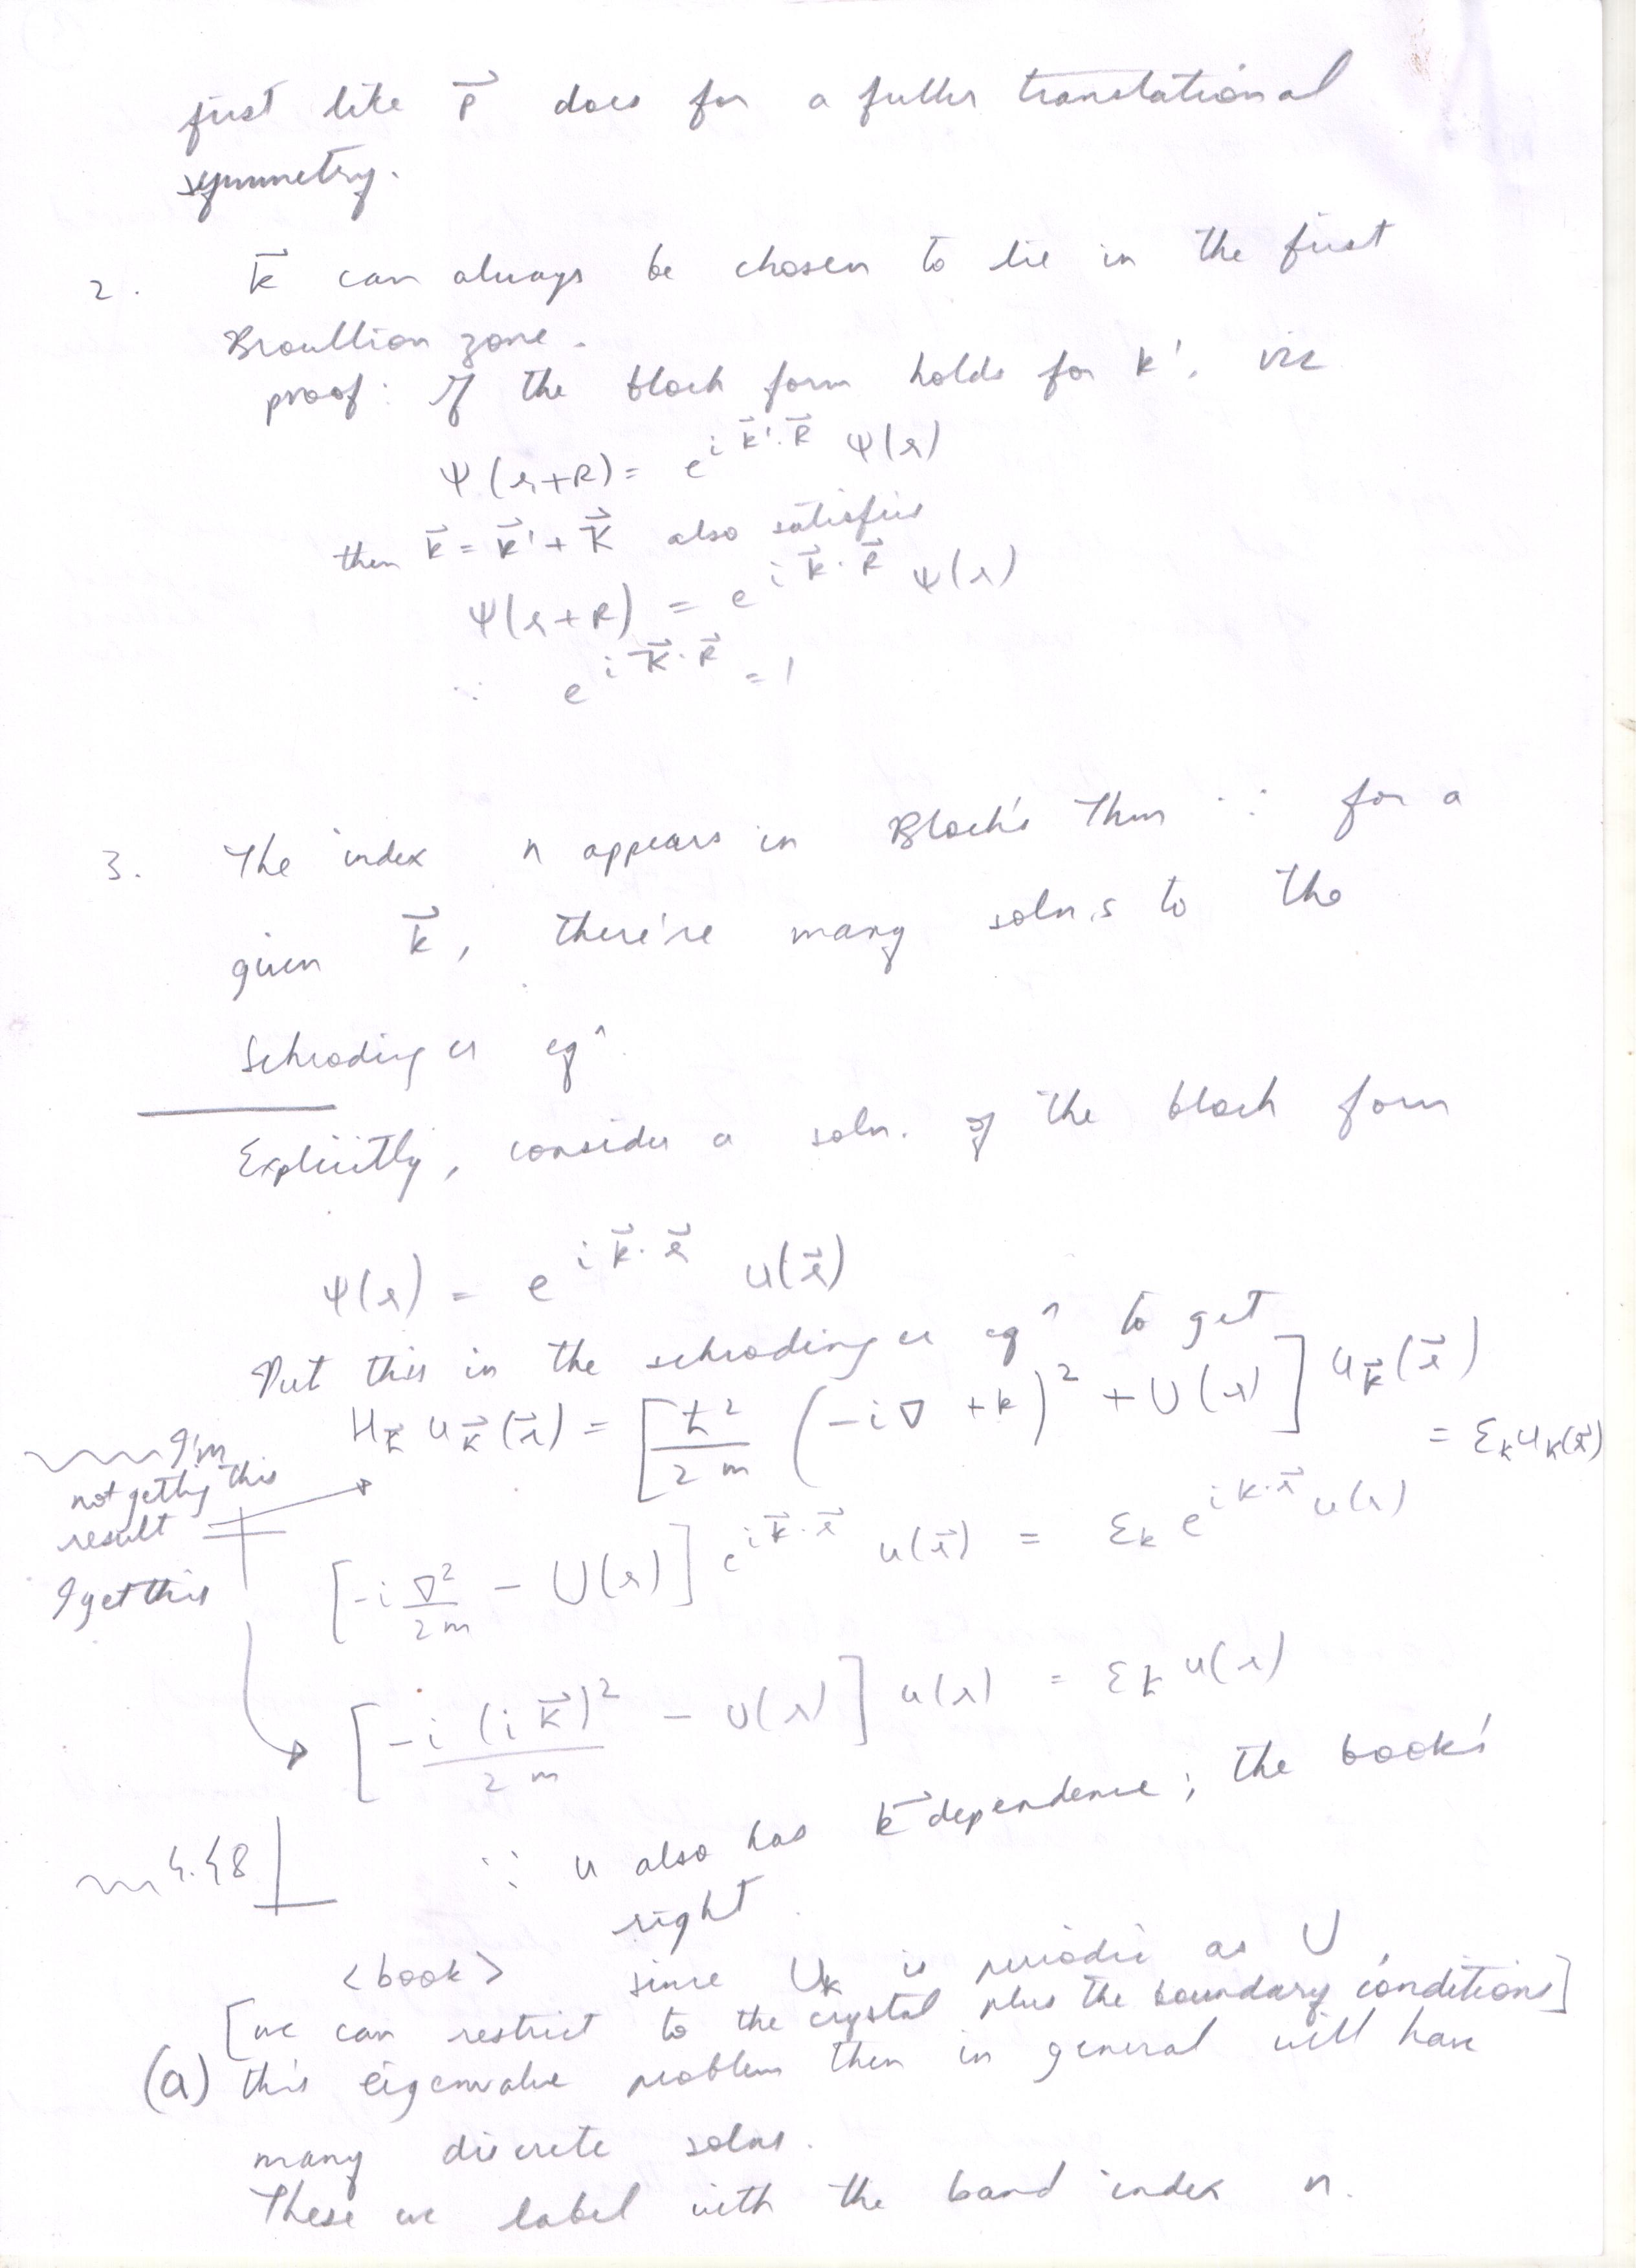 just like p⃗ does for a fuller translational
symmetry.
2. k⃗ can always be chosen to lie in the first
Broullion zone.
proof: If the bloch form holds for k', viz
Ψ(r+R) = e^{i k⃗'·R⃗} Ψ(r)
then k⃗ = k⃗' + K⃗ also satisfies
Ψ(r+R) = e^{i k⃗·R⃗} Ψ(r)
∵ e^{i K⃗·R⃗} = 1
3. The index n appears in Bloch's Thm ∵ for a
given k⃗, there're many soln.s to the
Schrodinger eqⁿ.
Explicitly, consider a soln. of the bloch form
ψ(r) = e^{i k⃗·r⃗} u(r⃗)
Put this in the schrodinger eqⁿ to get
H_k⃗ u_k⃗(r⃗) = [ħ²/2m (-i∇ + k)² + U(r)] u_k⃗(r⃗)
= ε_k u_k(r⃗)
I'm
not getting this
result
[-i ∇²/2m - U(r)] e^{i k⃗·r⃗} u(r⃗) = ε_k e^{i k·r⃗} u(r)
I get this
[-i (i k⃗)²/2m - U(r)] u(r) = ε_k u(r)
∵ u also has k⃗ dependence; the book's
right.
4.48
<book> since U_k is periodic as U,
[we can restrict to the crystal plus the boundary conditions]
(a) this eigenvalue problem then in general will have
many discrete solns.
These we label with the band index n.